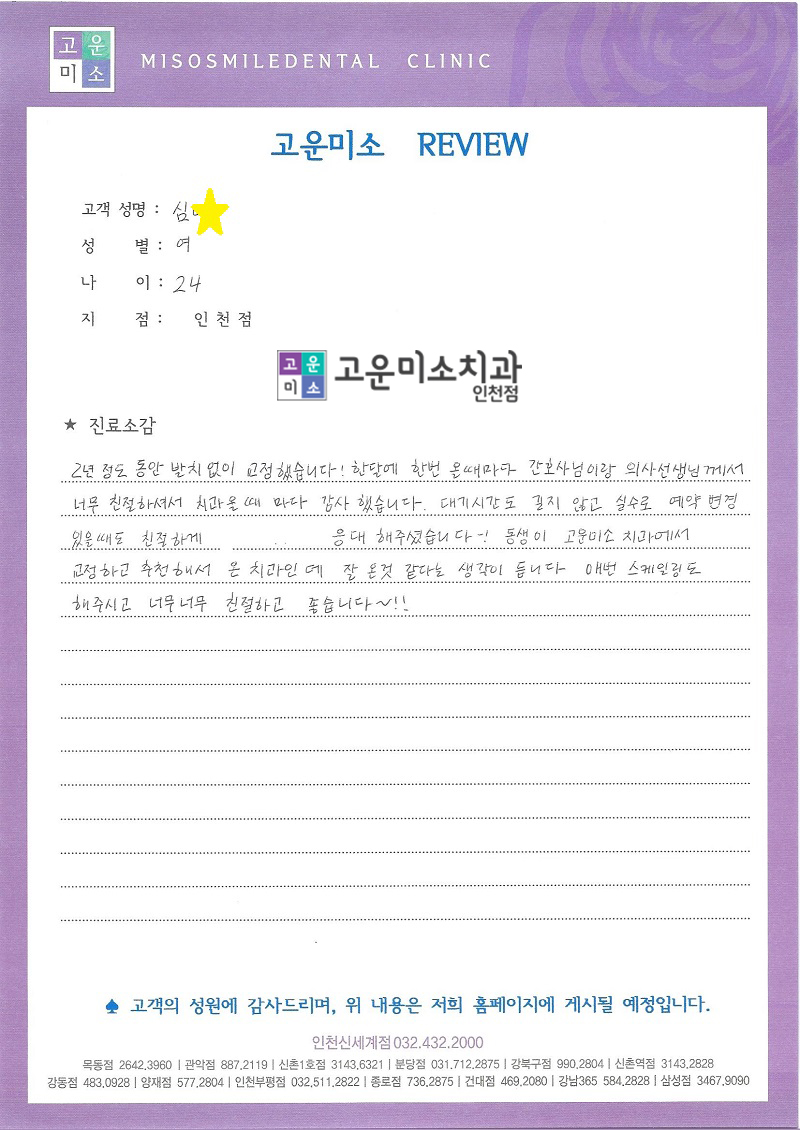 고운
미소
MISOSMILEDENTAL CLINIC
고운미소 REVIEW
고객 성명 : 심
성 별 : 여
나 이 : 24
지 점 : 인천점
고운
미소
고운미소치과
인천점
★ 진료소감
2년 정도 동안 발치 없이 교정했습니다! 한달에 한번 올때마다 간호사님이랑 의사선생님께서
너무 친절하셔서 치과올때 마다 감사했습니다. 대기시간도 길지 않고 실수로 예약 변경
있을때도 친절하게 응대 해주셨습니다~! 동생이 고운미소 치과에서
교정하고 추천해서 온 치과인데 잘 온것 같다는 생각이 듭니다 매번 스케일링도
해주시고 너무너무 친절하고 좋습니다~!!
♠ 고객의 성원에 감사드리며, 위 내용은 저희 홈페이지에 게시될 예정입니다.
인천신세계점 032.432.2000
목동점 2642.3960 | 관악점 887.2119 | 신촌1호점 3143.6321 | 분당점 031.712.2875 | 강북구점 990.2804 | 신촌역점 3143.2828
강동점 483.0928 | 양재점 577.2804 | 인천부평점 032.511.2822 | 종로점 736.2875 | 건대점 469.2080 | 강남365 584.2828 | 삼성점 3467.9090